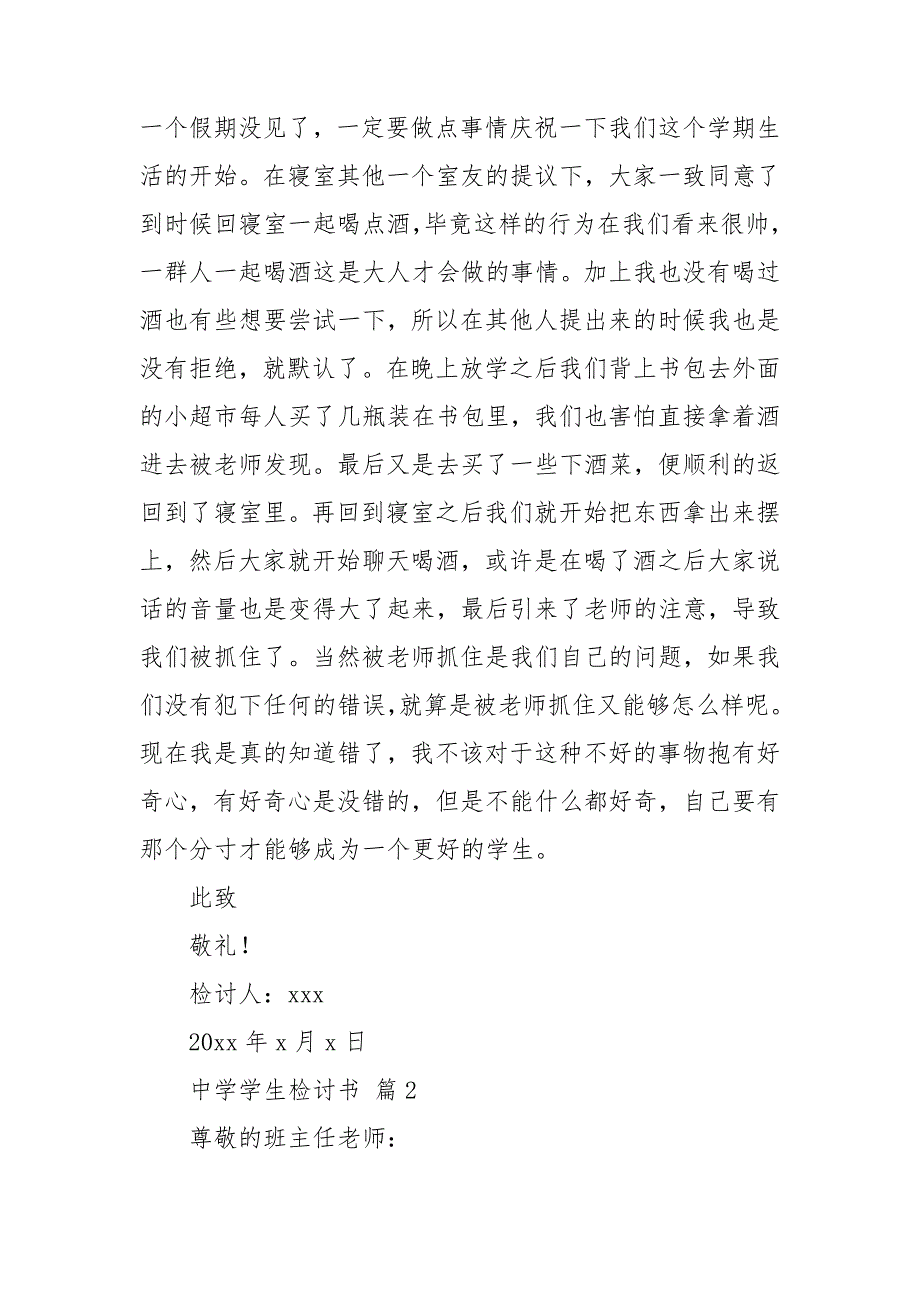 一个假期没见了，一定要做点事情庆祝一下我们这个学期生
活的开始。在寝室其他一个室友的提议下，大家一致同意了
到时候回寝室一起喝点酒，毕竟这样的行为在我们看来很帅，
一群人一起喝酒这是大人才会做的事情。加上我也没有喝过
酒也有些想要尝试一下，所以在其他人提出来的时候我也是
没有拒绝，就默认了。在晚上放学之后我们背上书包去外面
的小超市每人买了几瓶装在书包里，我们也害怕直接拿着酒
进去被老师发现。最后又是去买了一些下酒菜，便顺利的返
回到了寝室里。再回到寝室之后我们就开始把东西拿出来摆
上，然后大家就开始聊天喝酒，或许是在喝了酒之后大家说
话的音量也是变得大了起来，最后引来了老师的注意，导致
我们被抓住了。当然被老师抓住是我们自己的问题，如果我
们没有犯下任何的错误，就算是被老师抓住又能够怎么样呢。
现在我是真的知道错了，我不该对于这种不好的事物抱有好
奇心，有好奇心是没错的，但是不能什么都好奇，自己要有
那个分寸才能够成为一个更好的学生。
此致
敬礼！
检讨人：xxx
20xx 年 x 月 x 日
中学学生检讨书 篇 2
尊敬的班主任老师：